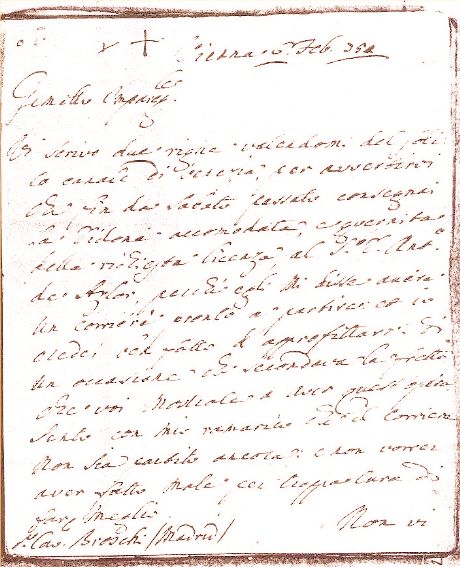 Vienna 6 Feb. 350
Gemello
Vi scrivo due righe valendomi del soli
to canale di Venezia, per avvertirvi
che fin da sabato passato consegnai
la Didone accomodata, e guernita
della licenza al Sr. Ant.
de Aylor, perché egli mi disse avere
un corriere pronto a partire: ed io
credei ben fatto d'approfittarmi di
un occasione che secondava la fretta
che voi mostrate d'aver quest'opera
Sento con mio ramarico che il Corriere
non sia partito ancora: e non vorrei
aver fatto male per troppa cura di
far meglio
Non vi
Sr. Cav. Broschi (Madrid)